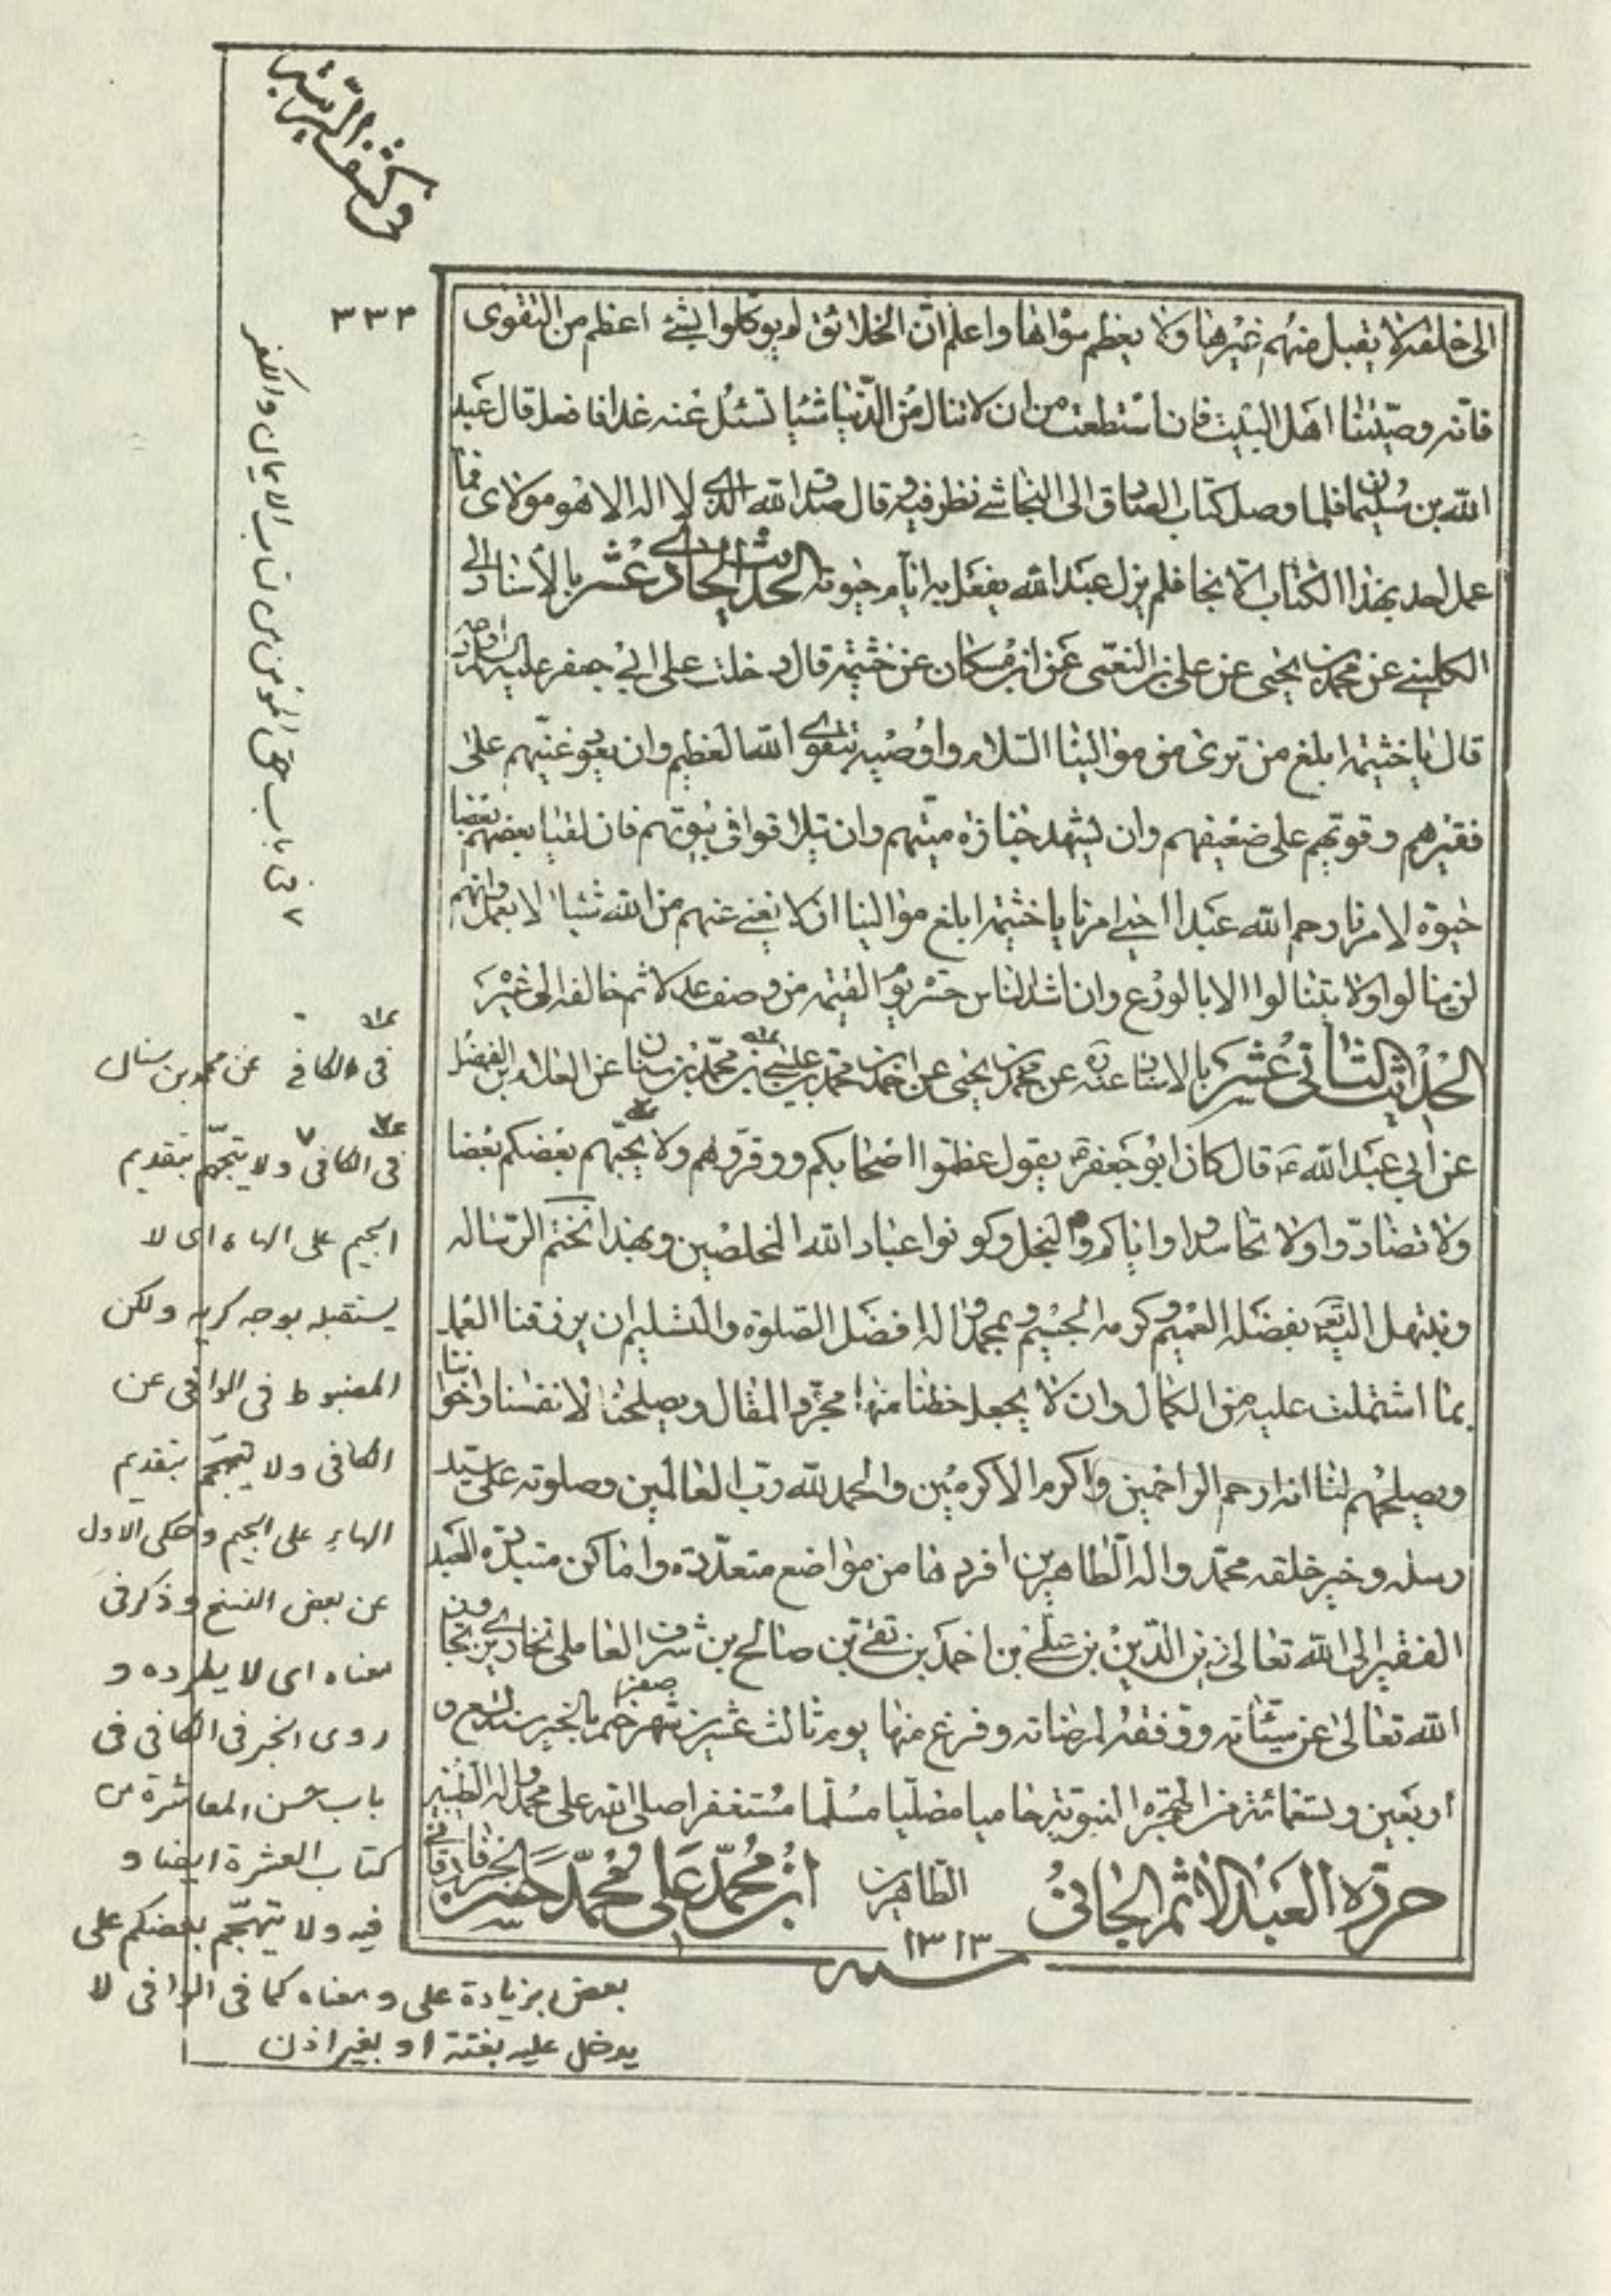 في كشف الريبة
٣٣٣
الى خلقه لا يقبل منهم غيرها ولا يعظم سواها واعلم ان الخلائق لو يوكلوا بشئ اعظم من التقوى
فانه وصيتنا اهل البيت فان استطعت من ان لا تنال من الدنيا شيئا تسئل عنه غدا فافعل قال عبد
الله بن سليمان فلما وصل كتاب الصادق الى النجاشي نظر فيه قال صدق والله الذي لا اله الا هو مولاى فما
عمل احد بهذا الكتاب الا نجا فلم يزل عبد الله يفعل به ايام حيوته الحديث الحادي عشر بالأسناد الى
الكليني عن محمد بن يحيى عن على بن النعمى عن ابن مسكان عن خثيمة قال دخلت على ابي جعفر عليه السلام
قال يا خثيمة ابلغ من ترى من موالينا السلام واوصيهم بتقوى الله العظيم وان يعود غنيهم على
فقيرهم وقويهم على ضعيفهم وان يشهد جنازة ميتهم وان يتلاقوا في بيوتهم فان لقيا بعضهم بعضا
حيوة لامرنا رحم الله عبدا احيى امرنا يا خثيمة ابلغ موالينا ان لا نغني عنهم من الله شيئا الا بعمل وانهم
لن ينالوا ولايتنا لوا الا بالورع وان اشد الناس حسرة يوم القيمة من وصف عدلا ثم خالفه الى غيره
الحديث الثاني عشر بالاسناد عنه عن محمد بن يحيى عن احمد بن محمد بن عيسى عن محمد بن سنان عن العلاء بن الفضيل
عن أبي عبد الله ع قال كان ابو جعفر ع يقول عظموا اصحابكم ووقروهم ولا يتجهم بعضكم بعضا
ولا تضادوا ولا تحاسدوا واياكم والبخل وكونوا عباد الله المخلصين وبهذا نختم الرسالة
ونبتهل اليه بفضله العميم وكرمه الجسيم وبمحمد واله افضل الصلوة والتسليم ان يرزقنا العمل
بما اشتملت عليه من الكمال وان لا يجعل حظنا منها مجرد المقال ويصلحنا لانفسنا واخواننا
ويصلحهم لنا انه ارحم الراحمين واكرم الاكرمين والحمد لله رب العالمين وصلوته على سيد
رسله وخير خلقه محمد واله الطاهرين افردها من مواضع متعددة واماكن متبددة العبد
الفقير الى الله تعالى زين الدين بن على بن احمد بن تقى بن صالح بن شرف العاملى
الله تعالى عن سيئاته ووفقه لمرضاته وفرغ منها يوم ثالث عشر من شهر صفر ختم بالخير سنة تسع و
أربعين وتسعمائة من الهجرة النبوية حامدا مصليا مسلما مستغفرا صلى الله على محمد واله الطيبين
الطاهرين
حرره العبد الاثم الجاني
ابن محمد على محمد حسن
سنة ١٣١٣
٢ في باب حق المؤمن من كتاب الايمان والكفر
في الكافي عن محمد بن سنان
في الكافي ولا يتجهم بتقديم
الجيم على الهاء اى لا
يستقبله بوجه كريه ولكن
المضبوط في الوافي عن
الكافي ولا يتهجم بتقديم
الهاء على الجيم وحكى الاول
عن بعض النسخ وذكر في
معناه اى لا يطرده و
روى الخبر في الكافي في
باب حسن المعاشرة من
كتاب العشرة ايضا و
فيه ولا يتهجم بعضكم على
بعض بزيادة على ومعناه كما في الوافي لا
يدخل عليه بغتة او بغير اذن